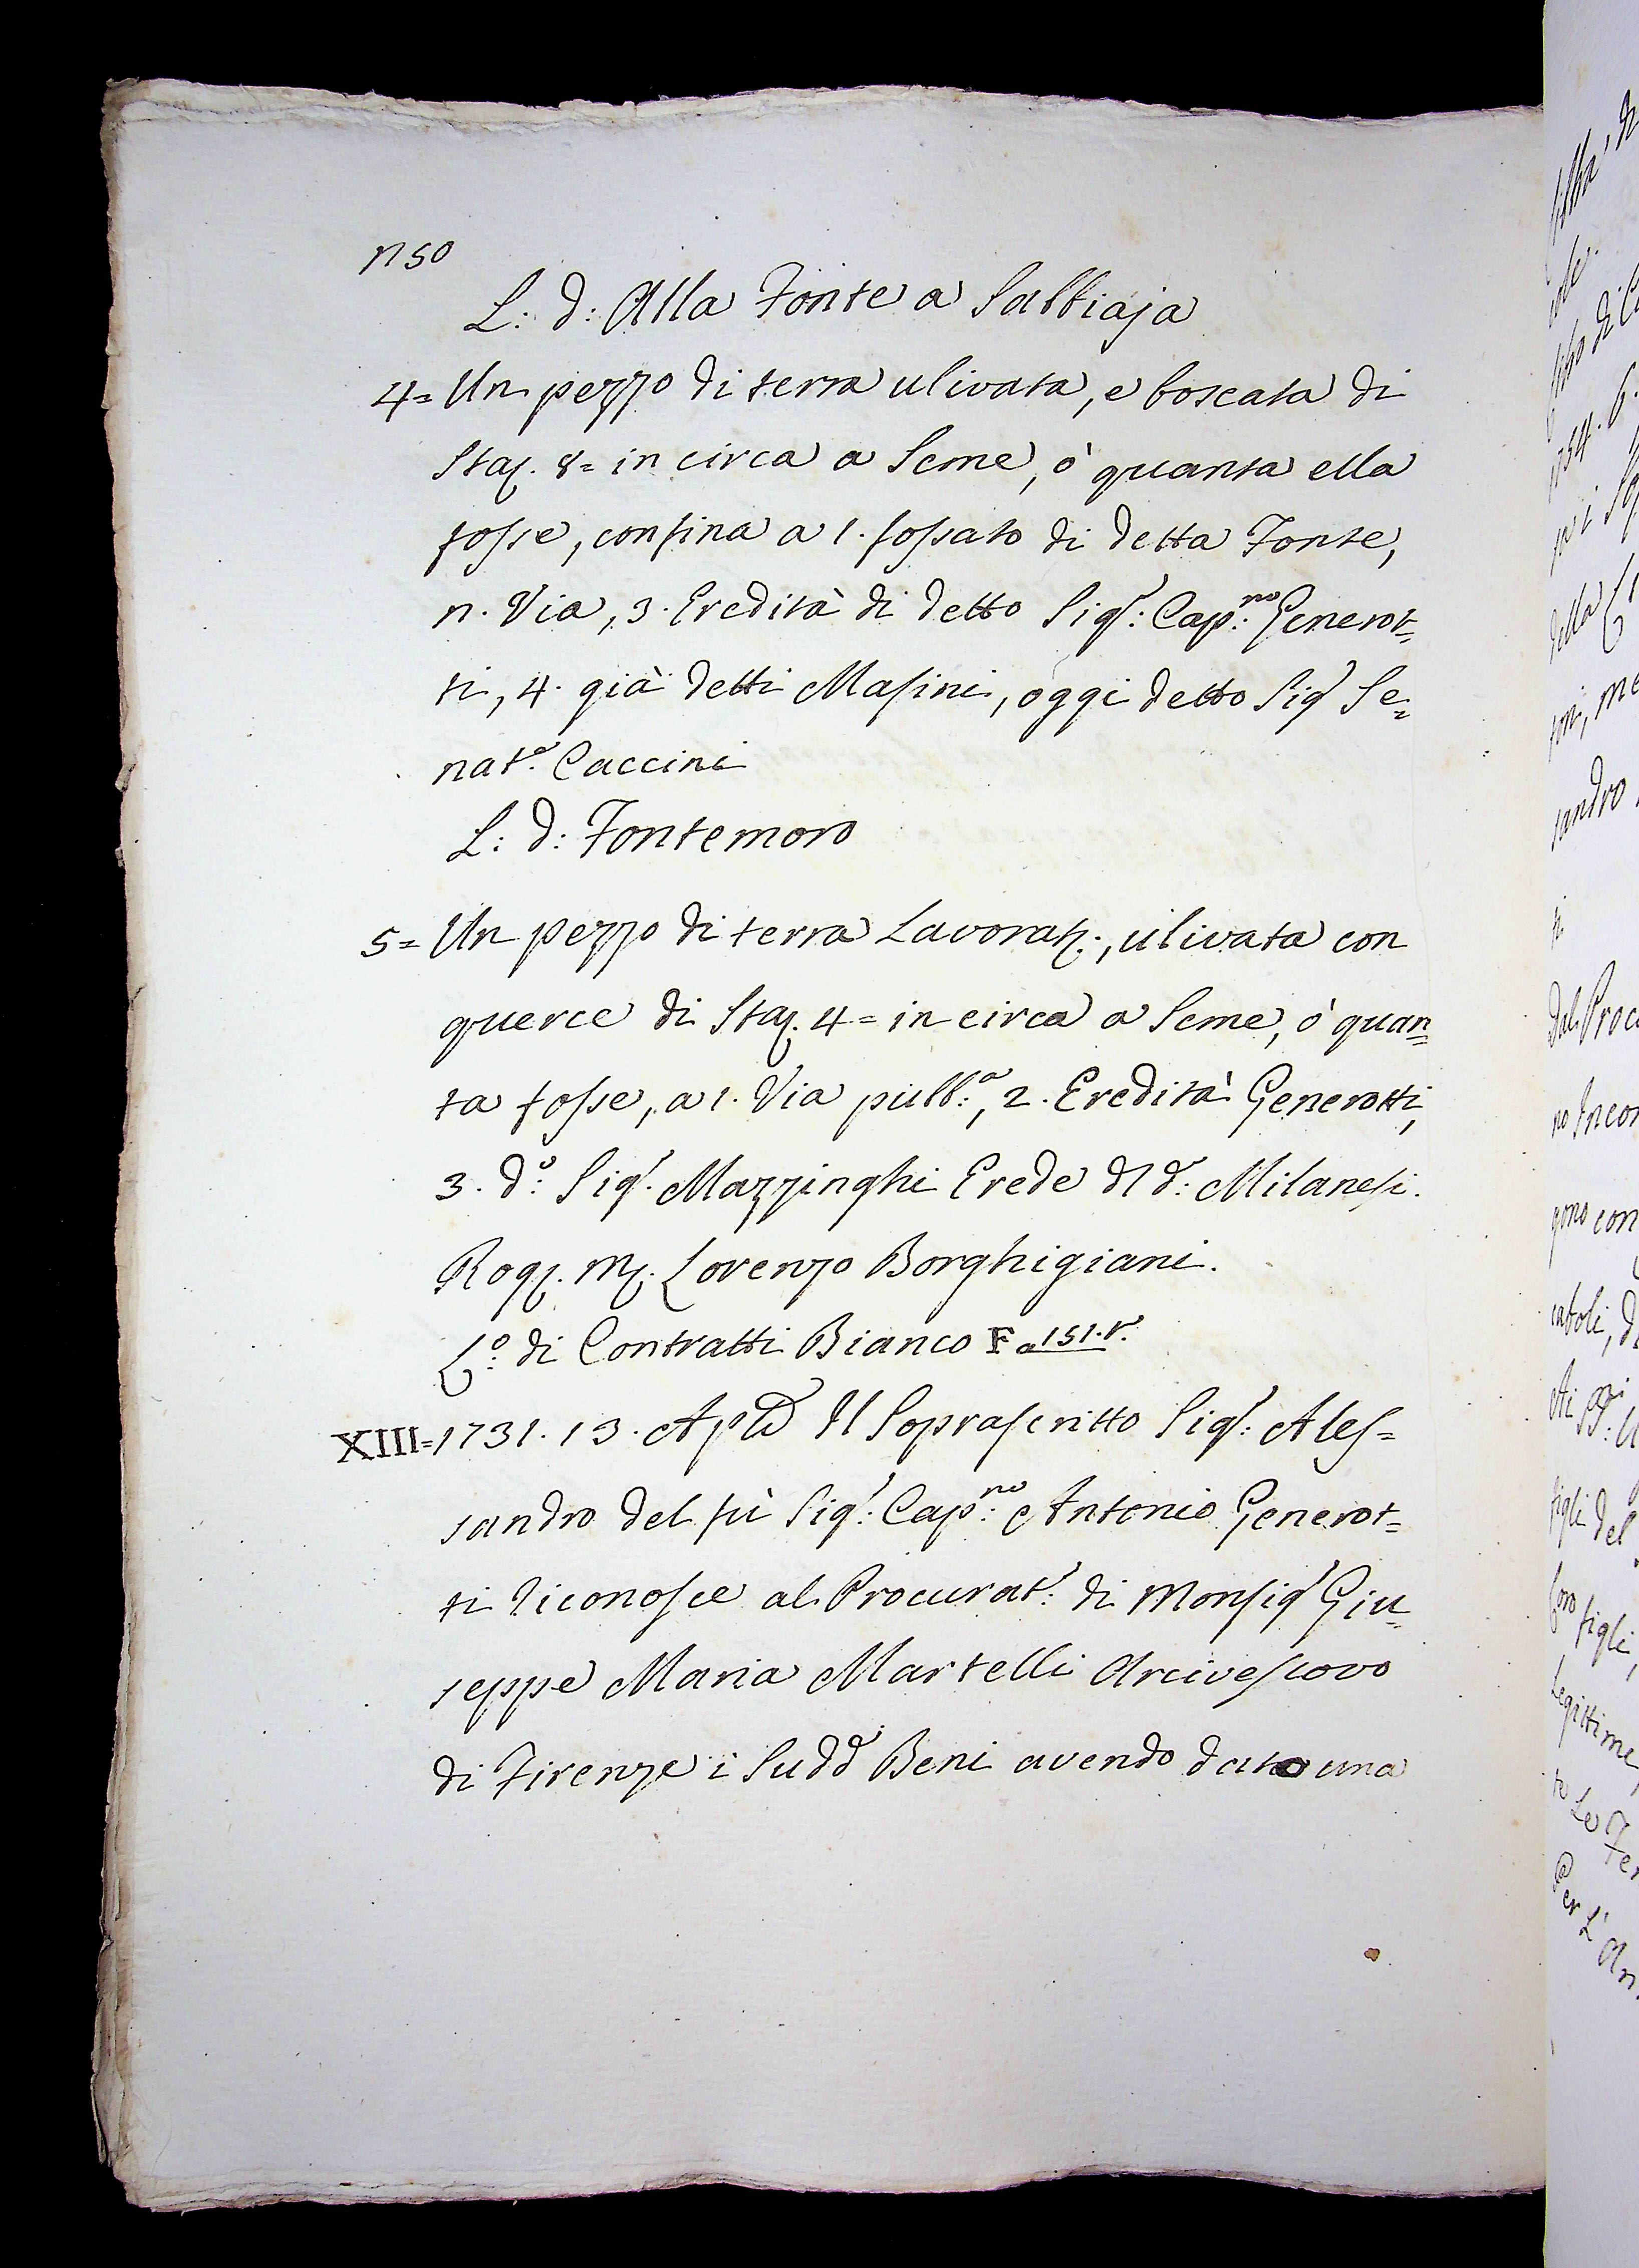 n50
L: d: Alla Fonte a Sabbiaja
4= Un pezzo di terra ulivata, e boscata di
Staj. 8= in circa a Seme, ò quanta ella
fosse, confina a 1. fossato di detta Fonte,
n. Via, 3. Eredità di detto Sigr: Capno: Generot=
ti, 4. già detti Masini, oggi detto Sigr Se=
nato. Caccini
L: d: Fontemoro
5= Un pezzo di terra Lavorat:, ulivata con
querce di Staj. 4= in circa a Seme, ò quan=
ta fosse, a 1. Via pubba:, 2. Eredità Generotti,
3. do: Sigr. Mazzinghi Erede dl d: Milanesi.
Rog. M. Lorenzo Borghigiani.
Lo: di Contratti Bianco F a 151. r.
XIII= 1731. 13. Aple Il Soprascritto Sigr: Ales=
sandro del fù Sigr: Capno: Antonio Generot=
ti riconosce al Procuratr: di Monsigr Giu=
seppe Maria Martelli Arcivescovo
di Firenze i Sudd Beni avendo dato una